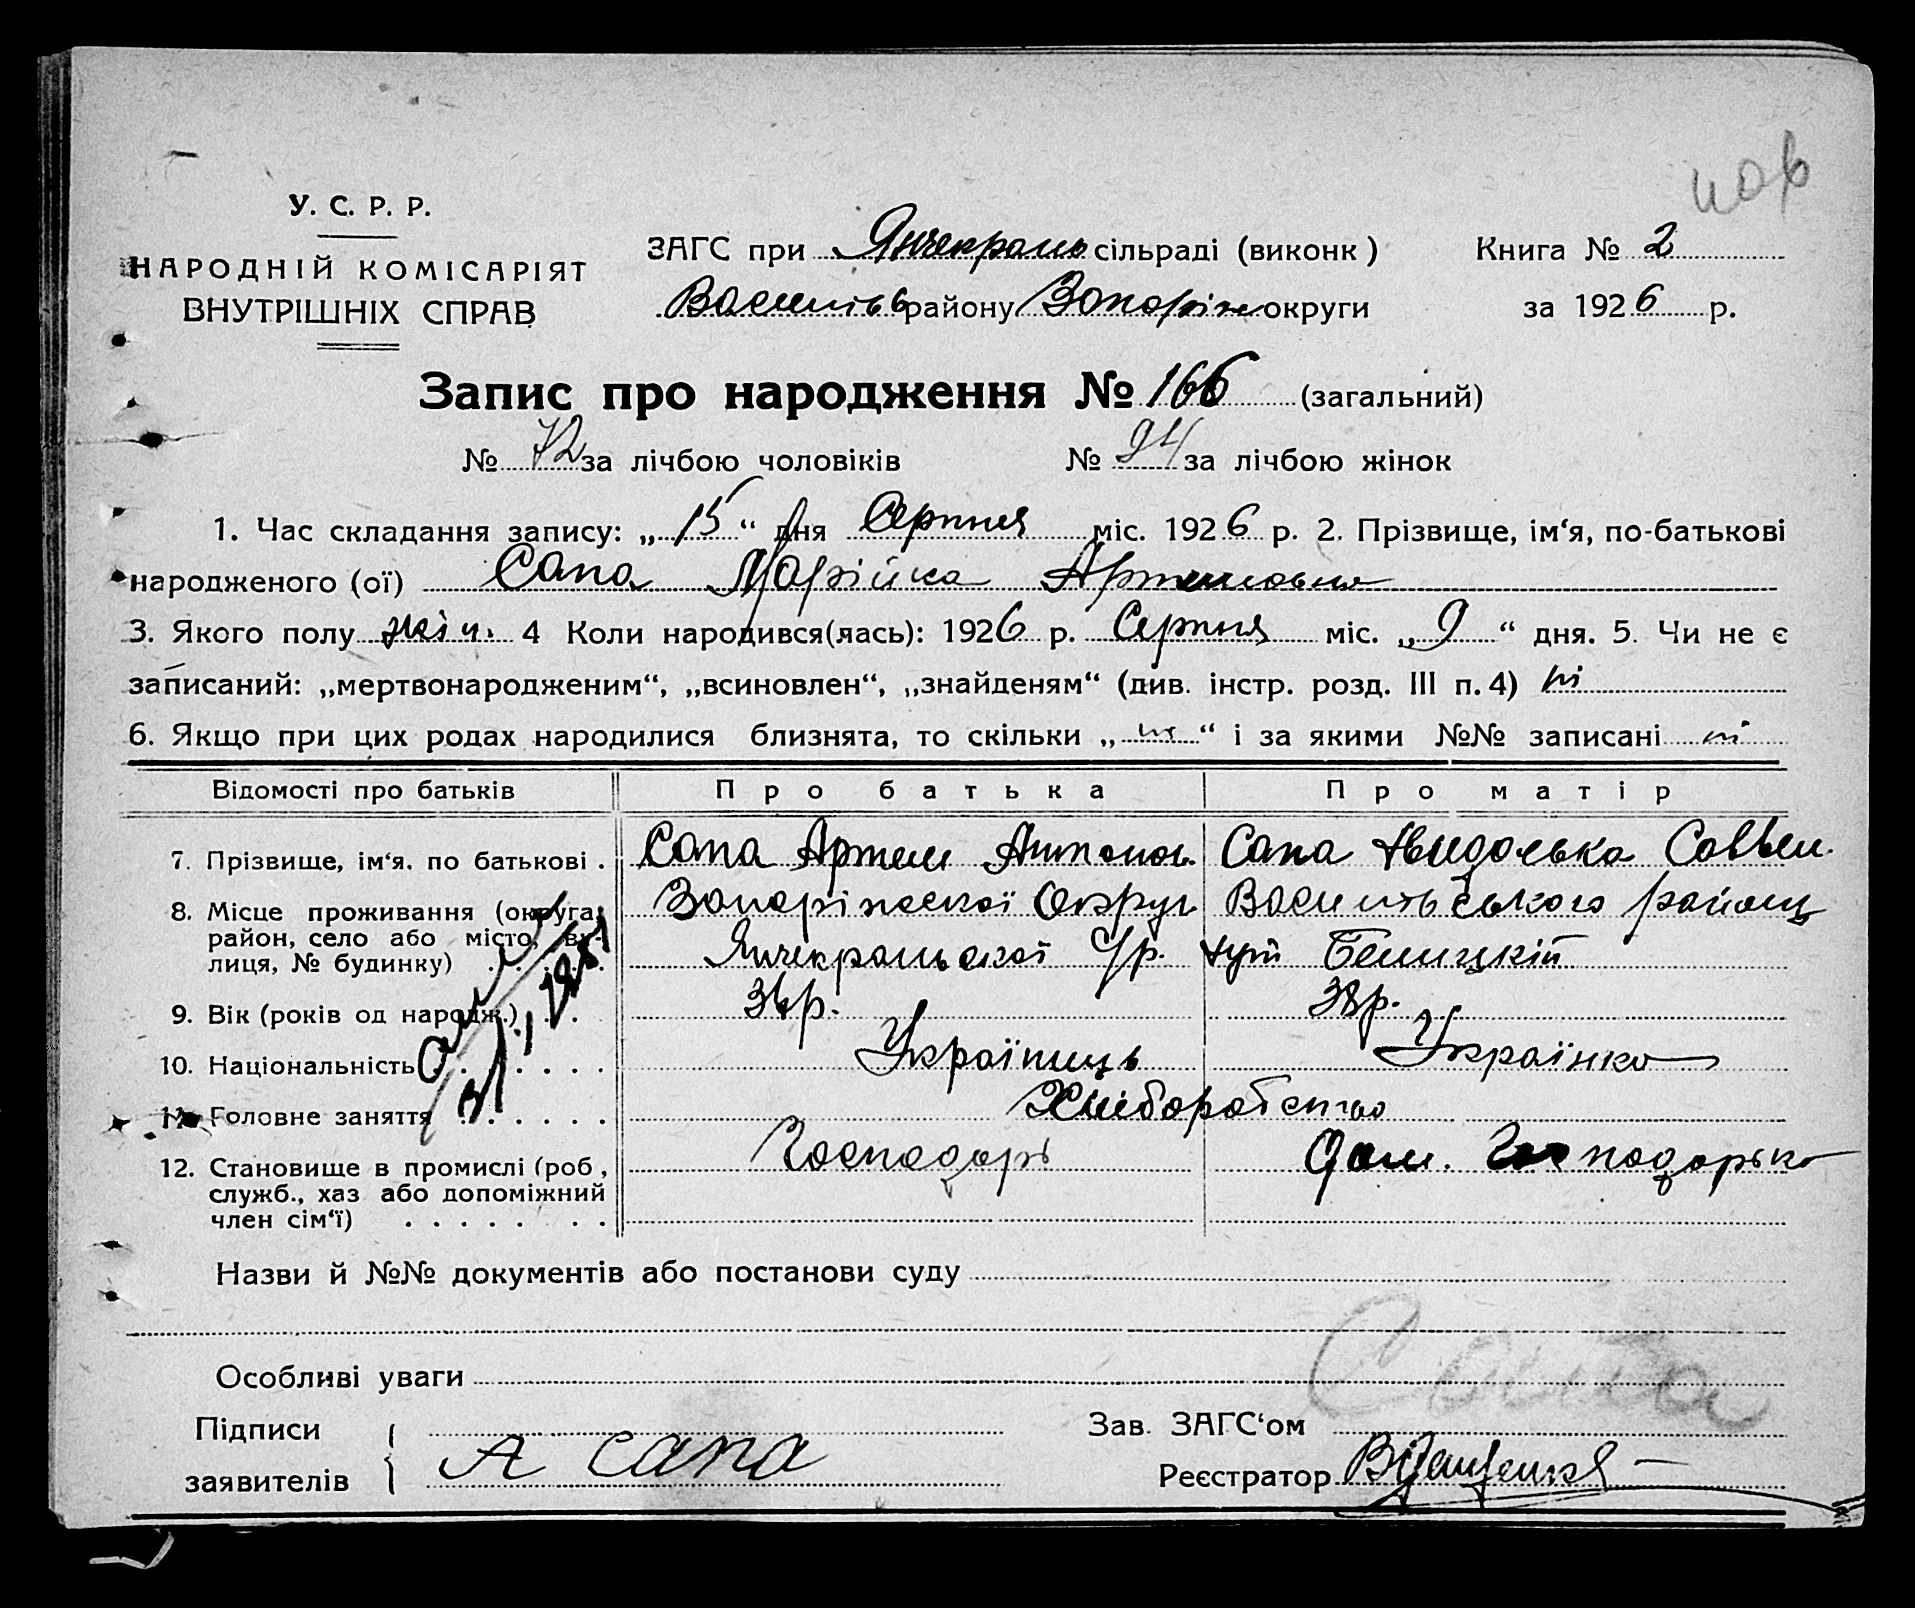 пов
У. С. Р. Р.
НАРОДНІЙ КОМІСАРІЯТ
ВНУТРІШНІХ СПРАВ
ЗАГС при Янчекрань сільраді (виконк)
Василівс району Запоріж округи
Книга № 2
за 1926 р.
Запис про народження № 166 (загальний)
№ 72 за лічбою чоловіків № 94 за лічбою жінок
1. Час складання запису: „15“ дня Серпня міс. 1926 р. 2. Прізвище, ім‘я, по-батькові
народженого (ої) Сапа Марійка Артемовна
3. Якого полу жін. 4 Коли народився(лась): 1926 р. Серпня міс. „9“ дня. 5. Чи не є
записаний: „мертвонародженим“, „всиновлен“, „знайденям“ (див. інстр. розд. III п. 4) ні
6. Якщо при цих родах народилися близнята, то скільки „ні“ і за якими №№ записані ні
Відомості про батьків Про батька Про матір
7. Прізвище, ім‘я. по батькові . Сапа Артем Антонов. Сапа
8. Місце проживання (округа, Запоріжської Округи Василівського району
район, село або місто, ву- Янчекраньської С/р. хут Белицкій
лиця, № будинку)
9. Вік (років од народж.) 36р. 38р.
10. Національність Українець Українка
11. Головне заняття Хліборобство
12. Становище в промислі (роб, Господарь Дом. Господарька
служб., хаз або допоміжний
член сім‘ї)
Назви й №№ документів або постанови суду
Особливі уваги
Підписи
заявителів А Сапа
Зав. ЗАГС‘ом
Реєстратор